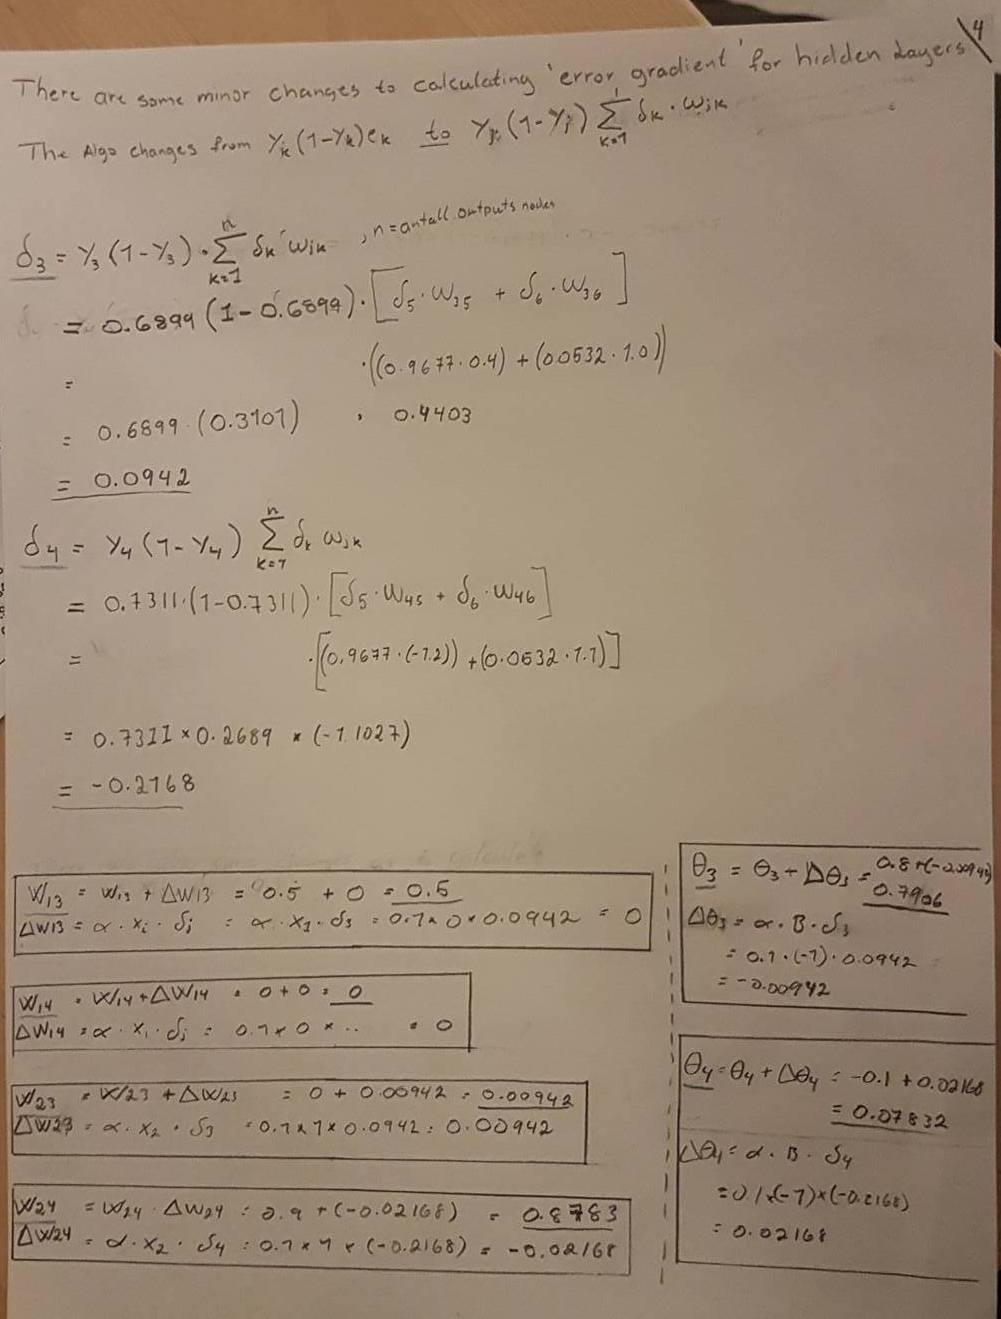 \4
There are some minor changes to calculating 'error gradient' for hidden layers
The Algo changes from Yk (1-Yk) ek to Yj (1-Yj) Σ k=1 δk · wjk
δ3 = Y3 (1-Y3) · n Σ k=1 δk wjk , n = antall outputs nodes
= 0.6899 (1-0.6899) · [δ5 · W35 + δ6 · W36]
= · ((0.9677 · 0.4) + (0.0532 · 1.0))
= 0.6899 · (0.3101) · 0.4403
= 0.0942
δ4 = Y4 (1-Y4) n Σ k=1 δk wjk
= 0.7311 · (1-0.7311) · [δ5 · W45 + δ6 · W46]
= · [(0.9677 · (-1.2)) + (0.0532 · 1.1)]
= 0.7311 × 0.2689 × (-1.1027)
= -0.2168
W13 = W13 + ΔW13 = 0.5 + 0 = 0.5
ΔW13 = α · xi · δj = α · x1 · δ3 = 0.1 × 0 × 0.0942 = 0
W14 = W14 + ΔW14 = 0 + 0 = 0
ΔW14 = α · x1 · δj = 0.1 × 0 × .. = 0
W23 = W23 + ΔW23 = 0 + 0.00942 = 0.00942
ΔW23 = α · x2 · δ3 = 0.1 × 1 × 0.0942 = 0.00942
W24 = W24 · ΔW24 = 0.9 + (-0.02168) = 0.8783
ΔW24 = α · x2 · δ4 = 0.1 × 1 × (-0.2168) = -0.02168
θ3 = θ3 + Δθ3 = 0.8 + (-0.00942)
0.7906
Δθ3 = α · B · δ3
= 0.1 · (-1) · 0.0942
= -0.00942
θ4 = θ4 + Δθ4 = -0.1 + 0.02168
= 0.07832
Δθ4 = α · B · δ4
= 0.1 × (-1) × (-0.2168)
= 0.02168